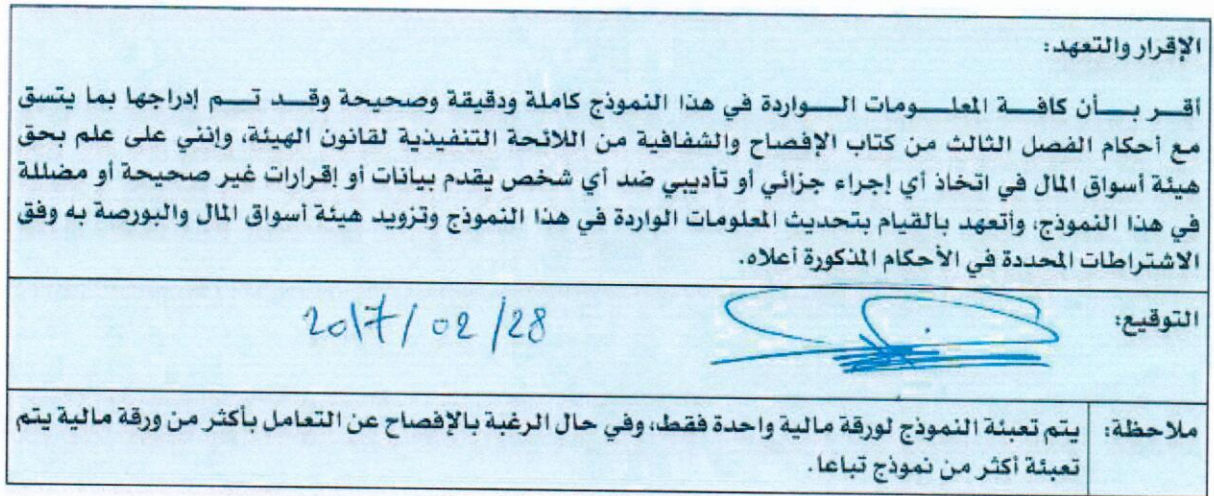 الإقرار والتعهد:
أقر بأن كافة المعلومات الواردة في هذا النموذج كاملة ودقيقة وصحيحة وقد تم إدراجها بما يتسق
مع أحكام الفصل الثالث من كتاب الإفصاح والشفافية من اللائحة التنفيذية لقانون الهيئة، وإنني على علم بحق
هيئة أسواق المال في اتخاذ أي إجراء جزائي أو تأديبي ضد أي شخص يقدم بيانات أو إقرارات غير صحيحة أو مضللة
في هذا النموذج، وأتعهد بالقيام بتحديث المعلومات الواردة في هذا النموذج وتزويد هيئة أسواق المال والبورصة به وفق
الاشتراطات المحددة في الأحكام المذكورة أعلاه.
التوقيع:
2017/02/28
ملاحظة: يتم تعبئة النموذج لورقة مالية واحدة فقط، وفي حال الرغبة بالإفصاح عن التعامل بأكثر من ورقة مالية يتم
تعبئة أكثر من نموذج تباعا.